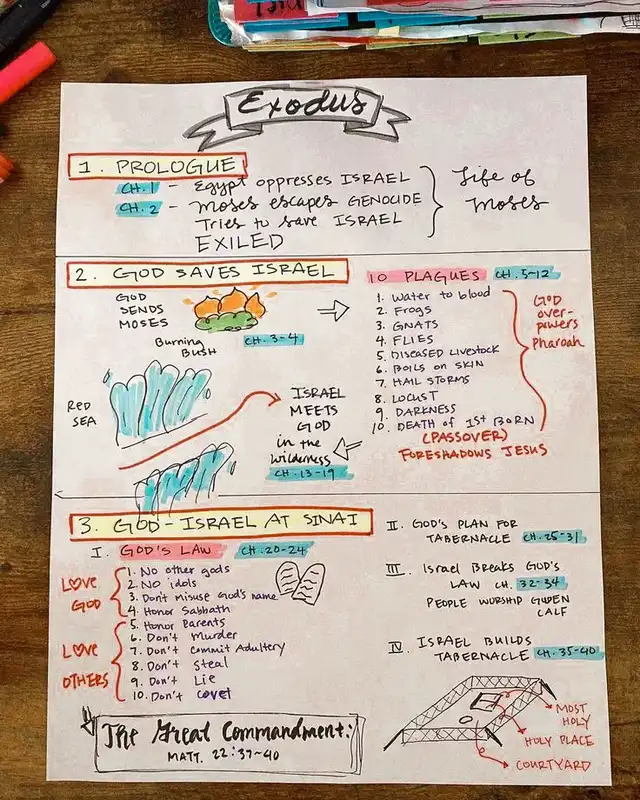 Exodus
1. PROLOGUE
CH. 1 - Egypt oppresses ISRAEL
CH. 2 - Moses escapes GENOCIDE
Tries to save ISRAEL
EXILED
Life of
Moses
2. GOD SAVES ISRAEL
GOD
SENDS
MOSES
Burning
Bush
CH. 3-4
10 PLAGUES CH. 5-12
1. Water to blood
2. Frogs
3. GNATS
4. FLIES
5. Diseased Livestock
6. BOILS ON SKIN
7. HAIL STORMS
8. LOCUST
9. DARKNESS
10. DEATH OF 1st BORN
(PASSOVER)
FORESHADOWS JESUS
GOD
over-
powers
Pharoah
RED
SEA
ISRAEL
MEETS
GOD
in the
wilderness
CH. 13-19
3. GOD-ISRAEL AT SINAI
I. GOD'S LAW CH. 20-24
LOVE
GOD
1. No other gods
2. NO idols
3. Don't misuse God's name
4. Honor Sabbath
LOVE
OTHERS
5. Honor Parents
6. Don't Murder
7. Don't Commit Adultery
8. Don't Steal
9. Don't Lie
10. Don't Covet
The Great Commandment:
MATT. 22:37-40
II. GOD'S PLAN FOR
TABERNACLE CH. 25-31
III. Israel Breaks GOD'S
LAW CH. 32-34
PEOPLE WORSHIP GOLDEN
CALF
IV. ISRAEL BUILDS
TABERNACLE CH. 35-40
MOST
HOLY
HOLY PLACE
COURTYARD